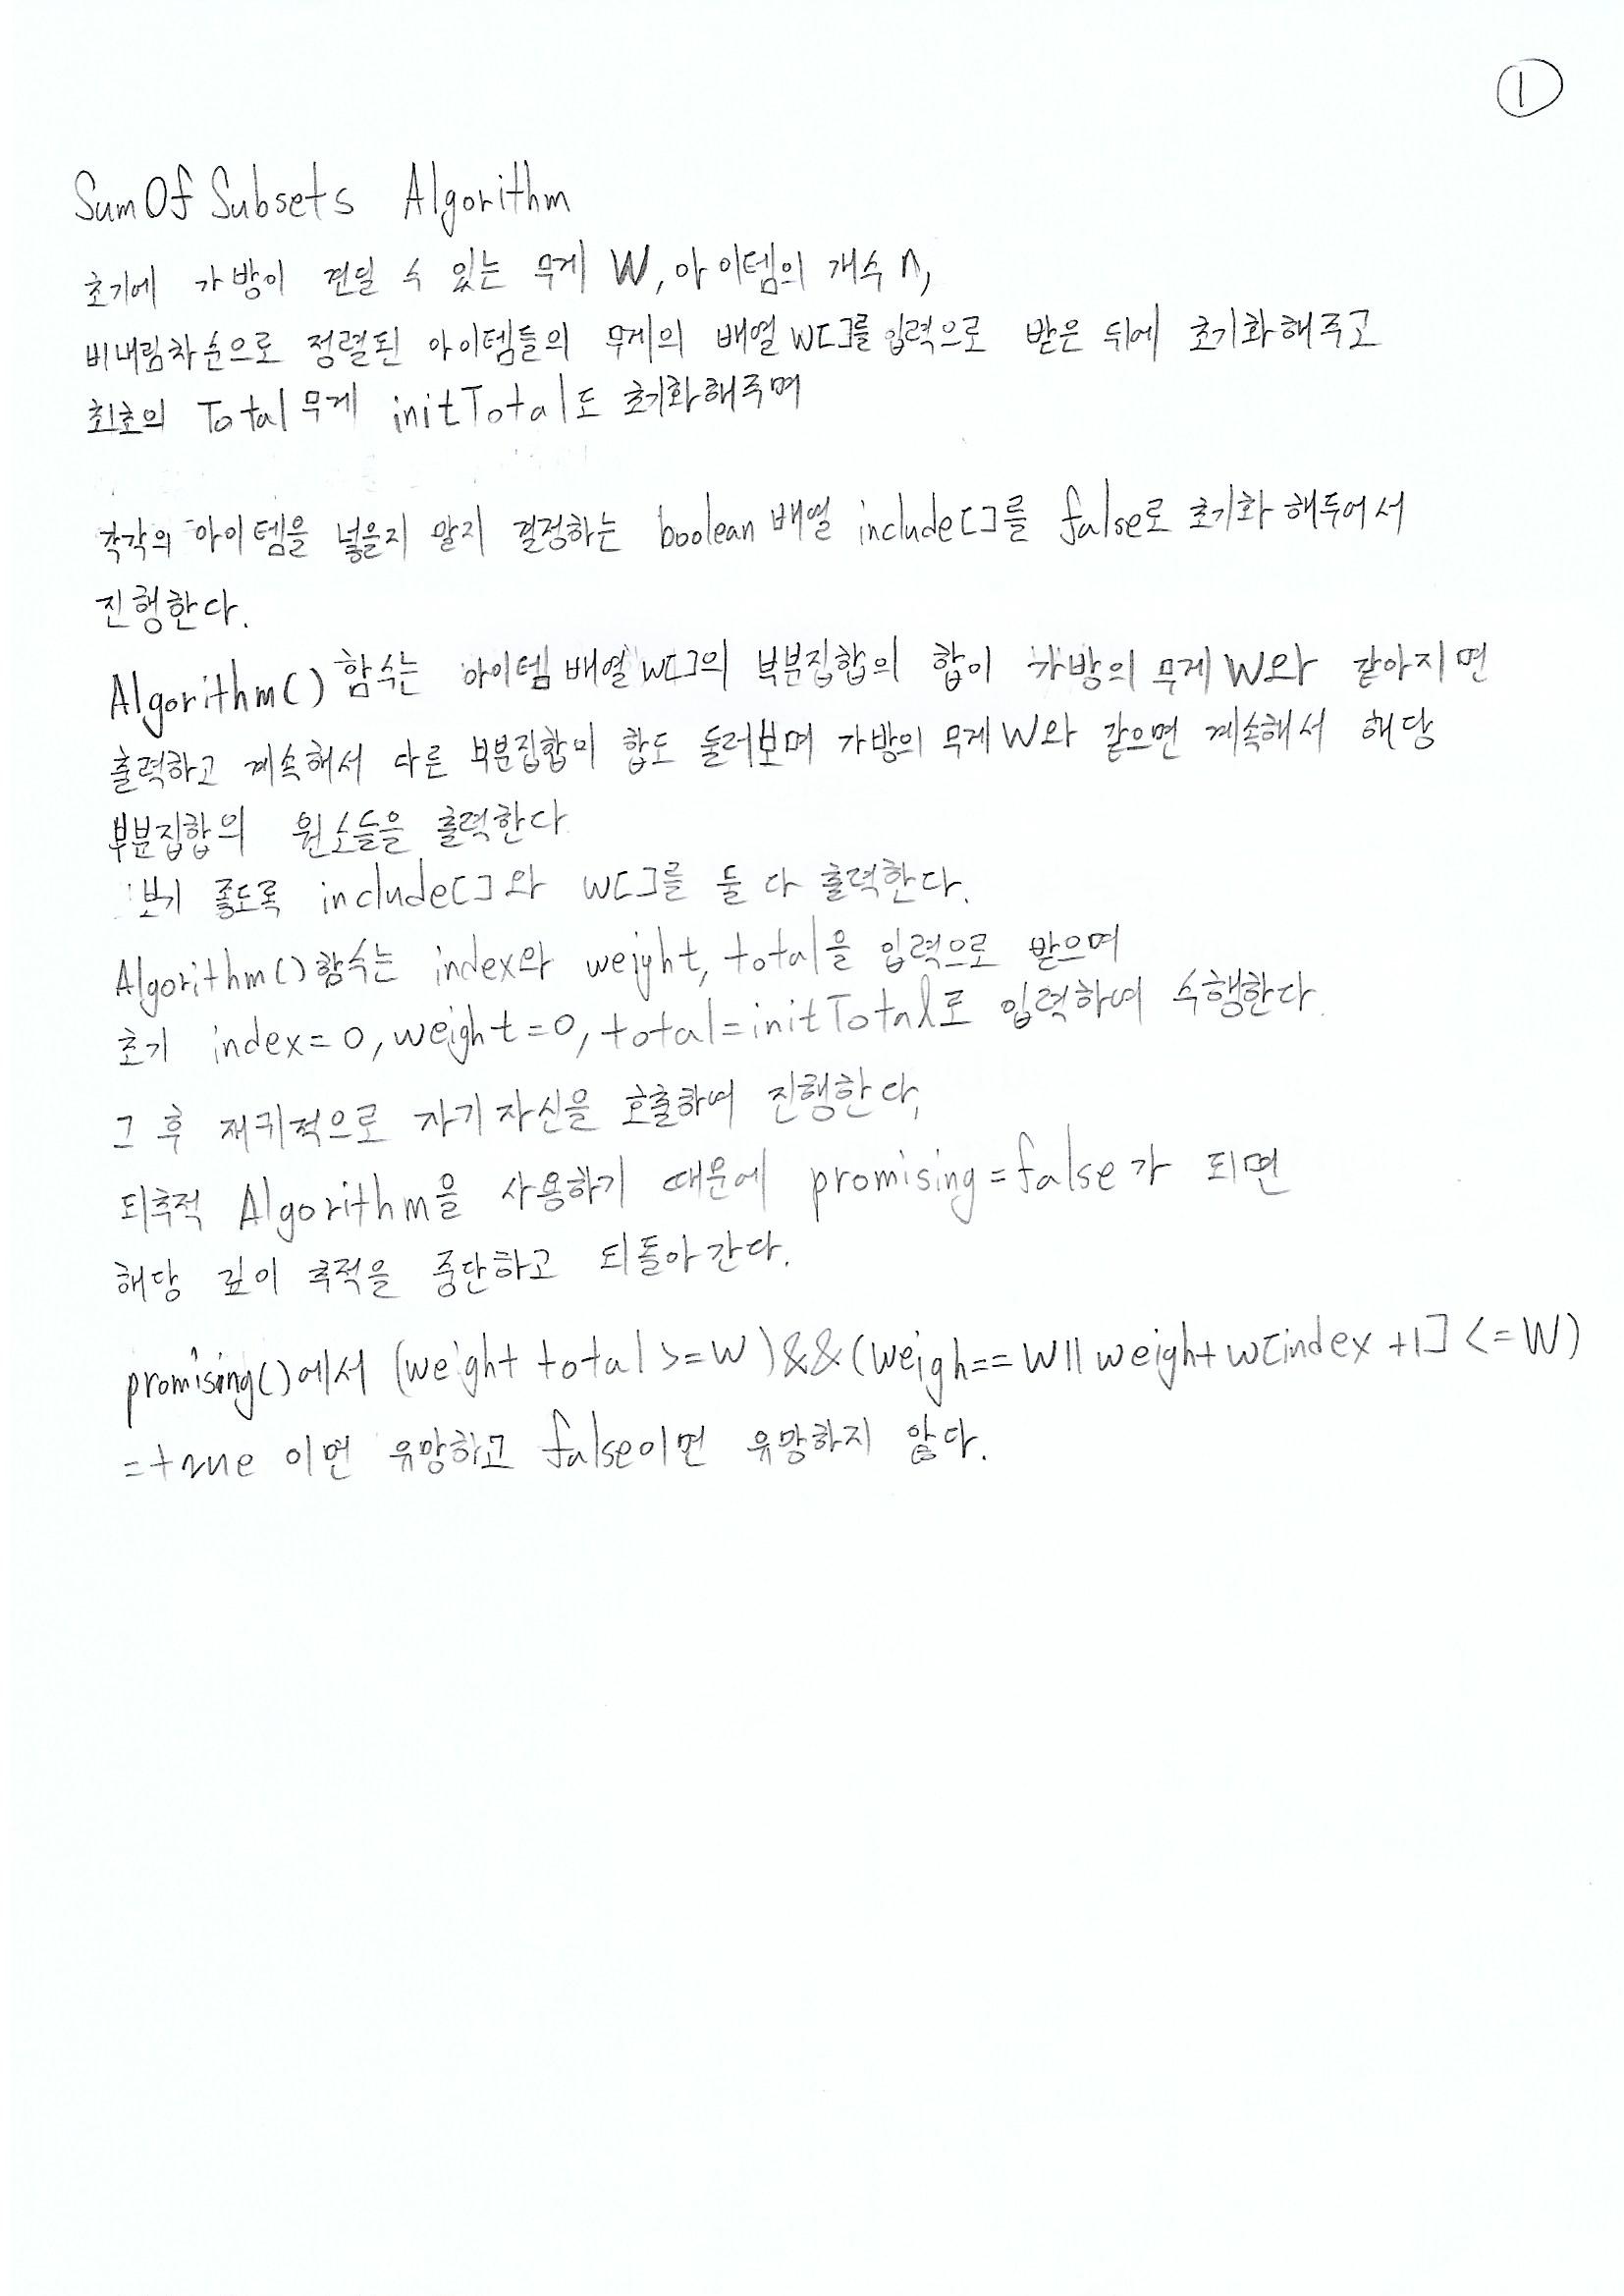 ①
SumOfSubsets Algorithm
초기에 가방이 견딜 수 있는 무게 W, 아이템의 개수 n,
비내림차순으로 정렬된 아이템들의 무게의 배열 w[]를 입력으로 받은 뒤에 초기화해주고
최초의 Total 무게 initTotal도 초기화해주며
각각의 아이템을 넣을지 말지 결정하는 boolean 배열 include[]를 false로 초기화 해두어서
진행한다.
Algorithm() 함수는 아이템 배열 w[]의 부분집합의 합이 가방의 무게 W와 같아지면
출력하고 계속해서 다른 부분집합의 합도 둘러보며 가방의 무게 W와 같으면 계속해서 해당
부분집합의 원소들을 출력한다
보기 좋도록 include[]와 w[]를 둘 다 출력한다.
Algorithm() 함수는 index와 weight, total을 입력으로 받으며
초기 index=0, weight=0, total=initTotal로 입력하여 수행한다.
그 후 재귀적으로 자기 자신을 호출하여 진행한다,
되추적 Algorithm을 사용하기 때문에 promising=false가 되면
해당 깊이 추적을 중단하고 되돌아간다.
promising()에서 (weight total >=W)&&(weigh==W|| weight w[index+1] <=W)
=true 이면 유망하고 false이면 유망하지 않다.